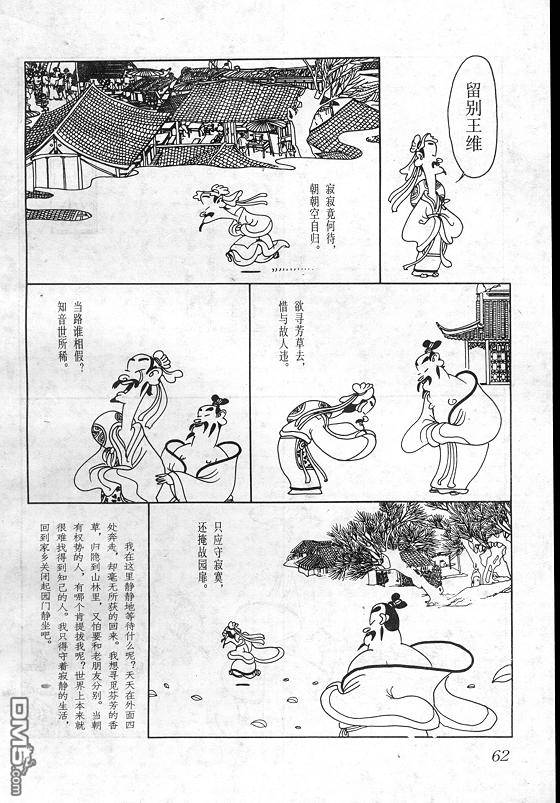 留别王维
寂寂竟何待，
朝朝空自归。
欲寻芳草去，
惜与故人违。
当路谁相假？
知音世所稀。
只应守寂寞，
还掩故园扉。
我在这里静静地等待什么呢？天天在外面四
处奔走，却毫无所获的回来。我想寻觅芬芳的香
草，归隐到山林里，又怕要和老朋友分别。当朝
有权势的人，有哪个肯提拔我呢？世界上本来就
很难找得到知己的人。我只得守着寂静的生活，
回到家乡关闭起园门静坐吧。
62
DM5.com